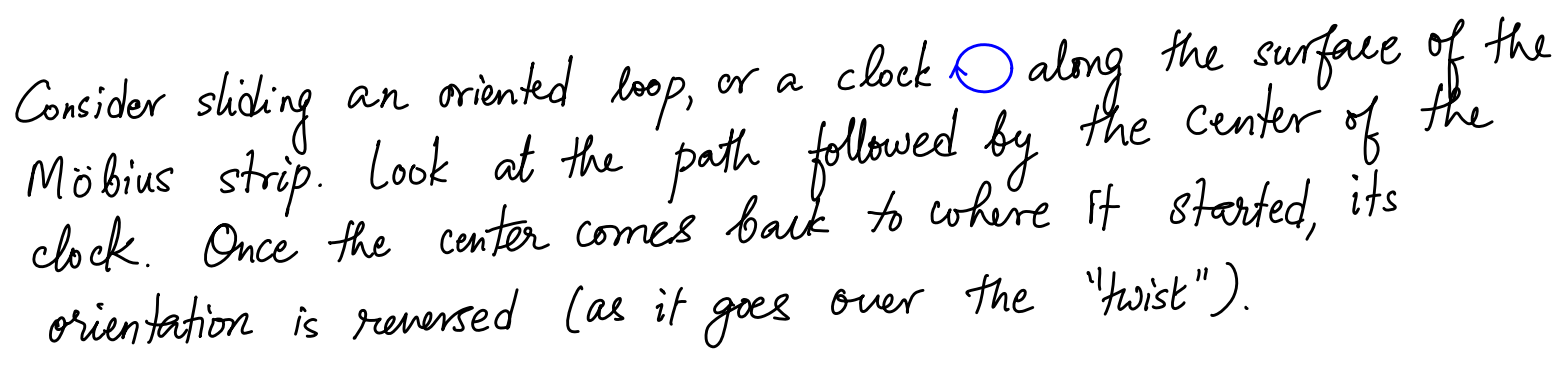 Consider sliding an oriented loop, or a clock along the surface of the
Möbius strip. Look at the path followed by the center of the
clock. Once the center comes back to where it started, its
orientation is reversed (as it goes over the "twist").